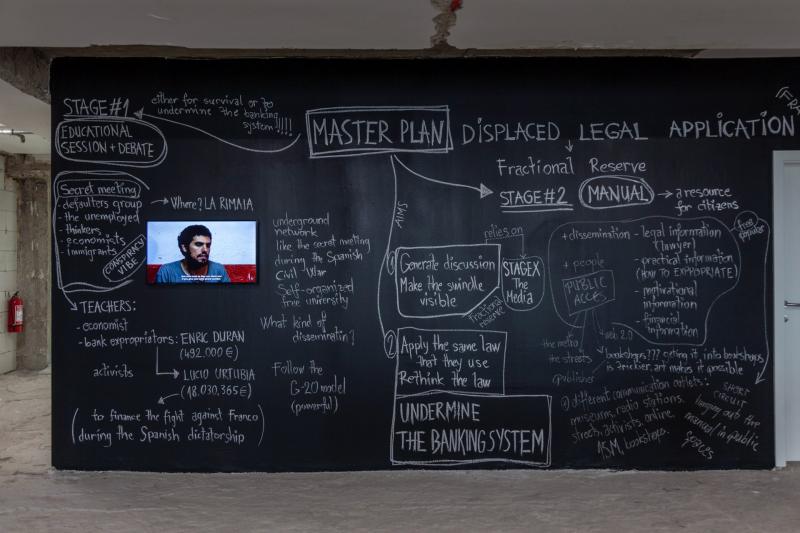 STAGE#1
EDUCATIONAL
SESSION + DEBATE
either for survival or to
undermine the banking
system!!!!
MASTER PLAN
DISPLACED LEGAL APPLICATION
Fractional Reserve
STAGE#2
MANUAL
a resource
for citizens
Secret meeting
- defaulters group
- the unemployed
- thinkers
- economists
- immigrants
CONSPIRACY
VIBE
Where? LA RIMAIA
TEACHERS:
- economist
- bank expropriators: ENRIC DURAN
(492.000 €)
activists
LUCIO URTUBIA
(18.030,365 €)
(to finance the fight against Franco
during the Spanish dictatorship)
underground
network
like the secret meeting
during the Spanish
Civil War
Self-organized
free university
What kind of
dissemination?
Follow the
G-20 model
(powerful)
AIMS
1
Generate discussion
Make the swindle
visible
relies on
STAGEX
The
Media
fractional
reserve
2
Apply the same law
that they use
Rethink the law
UNDERMINE
THE BANKING SYSTEM
+ dissemination
+ people
PUBLIC
ACCES
- legal information
(lawyer)
- practical information
(HOW TO EXPROPRIATE)
- motivational
information
- financial
information
free
the metro
the streets
web 2.0
@publisher
bookshops??? getting it into bookshops
is trickier, art makes it possible
different communication artists:
museums, radio stations,
streets, activists, online,
ASM, bookshops.
SHORT
CIRCUIT
manual in public
spaces